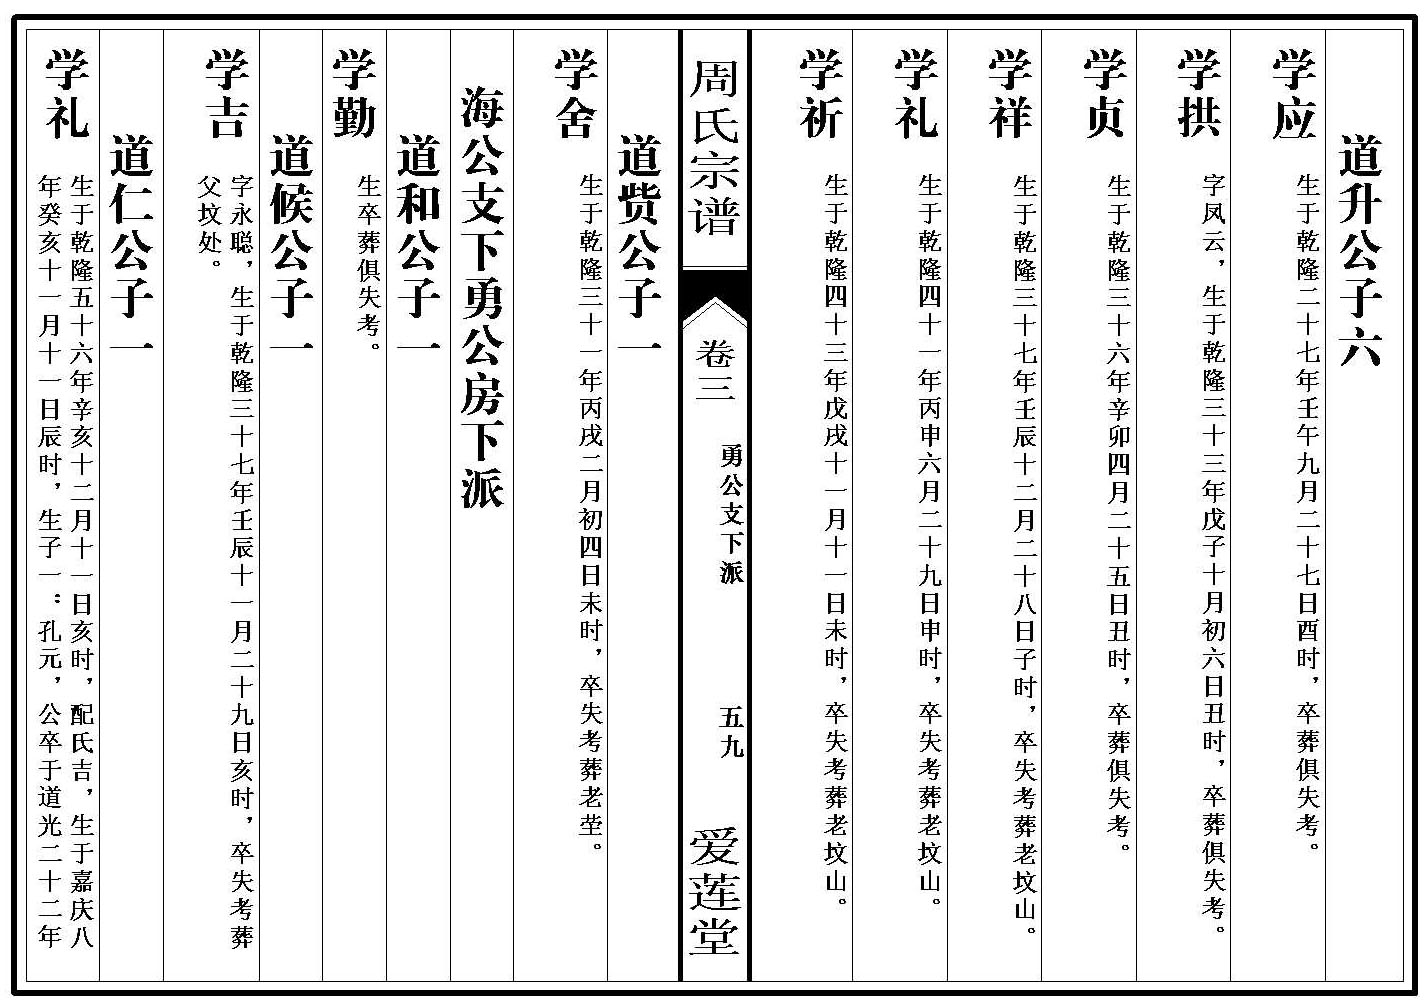 道升公子六
学应
生于乾隆二十七年壬午九月二十七日酉时，卒葬俱失考。
学拱
字凤云，生于乾隆三十三年戊子十月初六日丑时，卒葬俱失考。
学贞
生于乾隆三十六年辛卯四月二十五日丑时，卒葬俱失考。
学祥
生于乾隆三十七年壬辰十二月二十八日子时，卒失考葬老坟山。
学礼
生于乾隆四十一年丙申六月二十九日申时，卒失考葬老坟山。
学祈
生于乾隆四十三年戊戌十一月十一日未时，卒失考葬老坟山。
周氏宗谱
卷三
勇公支下派
五九
爱莲堂
道赀公子一
学舍
生于乾隆三十一年丙戌二月初四日未时，卒失考葬老茔。
海公支下勇公房下派
道和公子一
学勤
生卒葬俱失考。
道候公子一
学吉
字永聪，生于乾隆三十七年壬辰十一月二十九日亥时，卒失考葬
父坟处。
道仁公子一
学礼
生于乾隆五十六年辛亥十二月十一日亥时，配氏吉，生于嘉庆八
年癸亥十一月十一日辰时，生子一：孔元，公卒于道光二十二年